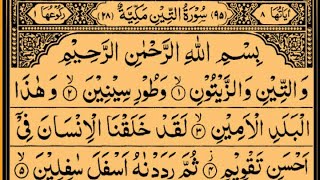 اٰیَاتُهَا ۸ (۹۵) سُوْرَةُ التِّيْنِ مَكِّيَّةٌ (۲۸) رُكُوْعُهَا ۱
بِسْمِ اللّٰهِ الرَّحْمٰنِ الرَّحِيْمِ
وَالتِّيْنِ وَالزَّيْتُوْنِ ۙ﴿۱﴾ وَطُوْرِ سِيْنِيْنَ ۙ﴿۲﴾ وَهٰذَا
الْبَلَدِ الْاَمِيْنِ ۙ﴿۳﴾ لَقَدْ خَلَقْنَا الْاِنْسَانَ فِيْٓ
اَحْسَنِ تَقْوِيْمٍ ۙ﴿۴﴾ ثُمَّ رَدَدْنٰهُ اَسْفَلَ سٰفِلِيْنَ ۙ﴿۵﴾